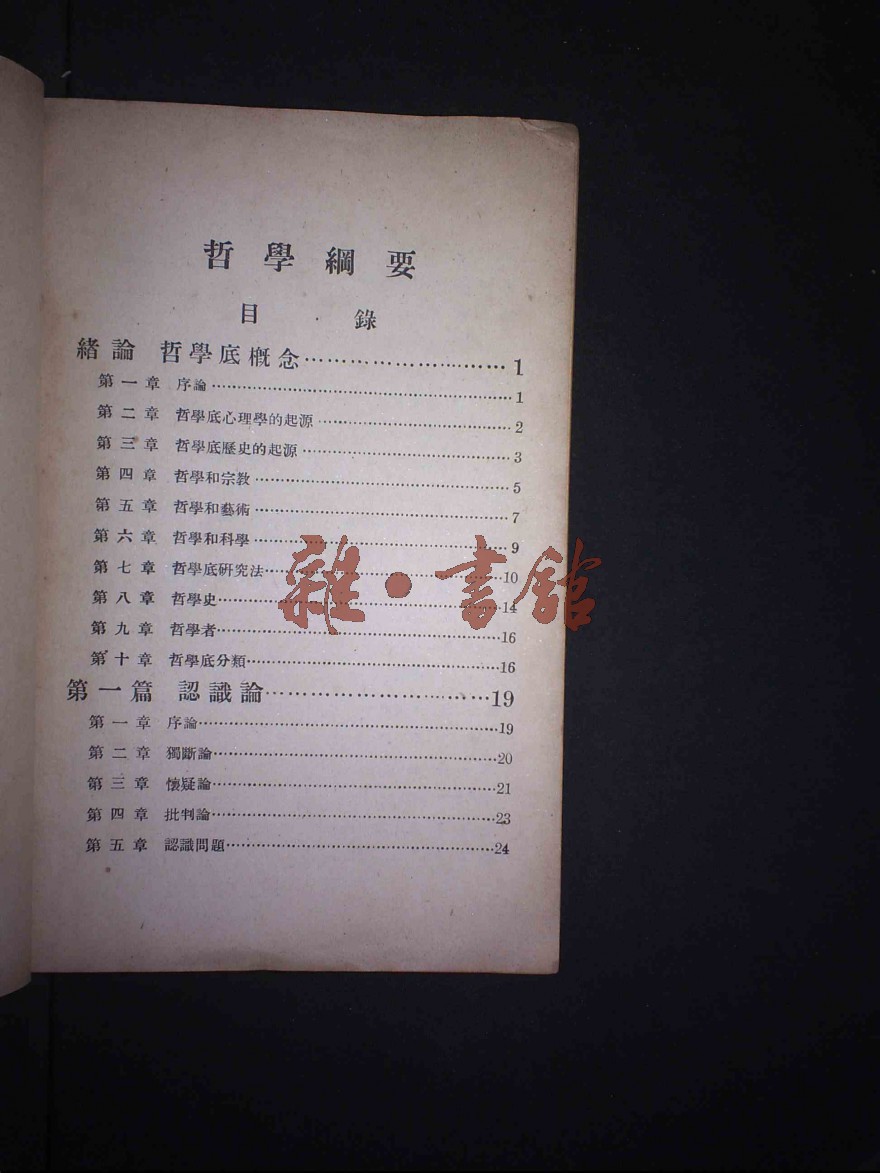 哲學綱要
目錄
緒論 哲學底概念……………………………1
第一章 序論……………………………1
第二章 哲學底心理學的起源……………………………2
第三章 哲學底歷史的起源……………………………3
第四章 哲學和宗教……………………………5
第五章 哲學和藝術……………………………7
第六章 哲學和科學……………………………9
第七章 哲學底硏究法……………………………10
第八章 哲學史……………………………14
第九章 哲學者……………………………16
第十章 哲學底分類……………………………16
雜·書館
第一篇 認識論……………………………19
第一章 序論……………………………19
第二章 獨斷論……………………………20
第三章 懷疑論……………………………21
第四章 批判論……………………………23
第五章 認識問題……………………………24